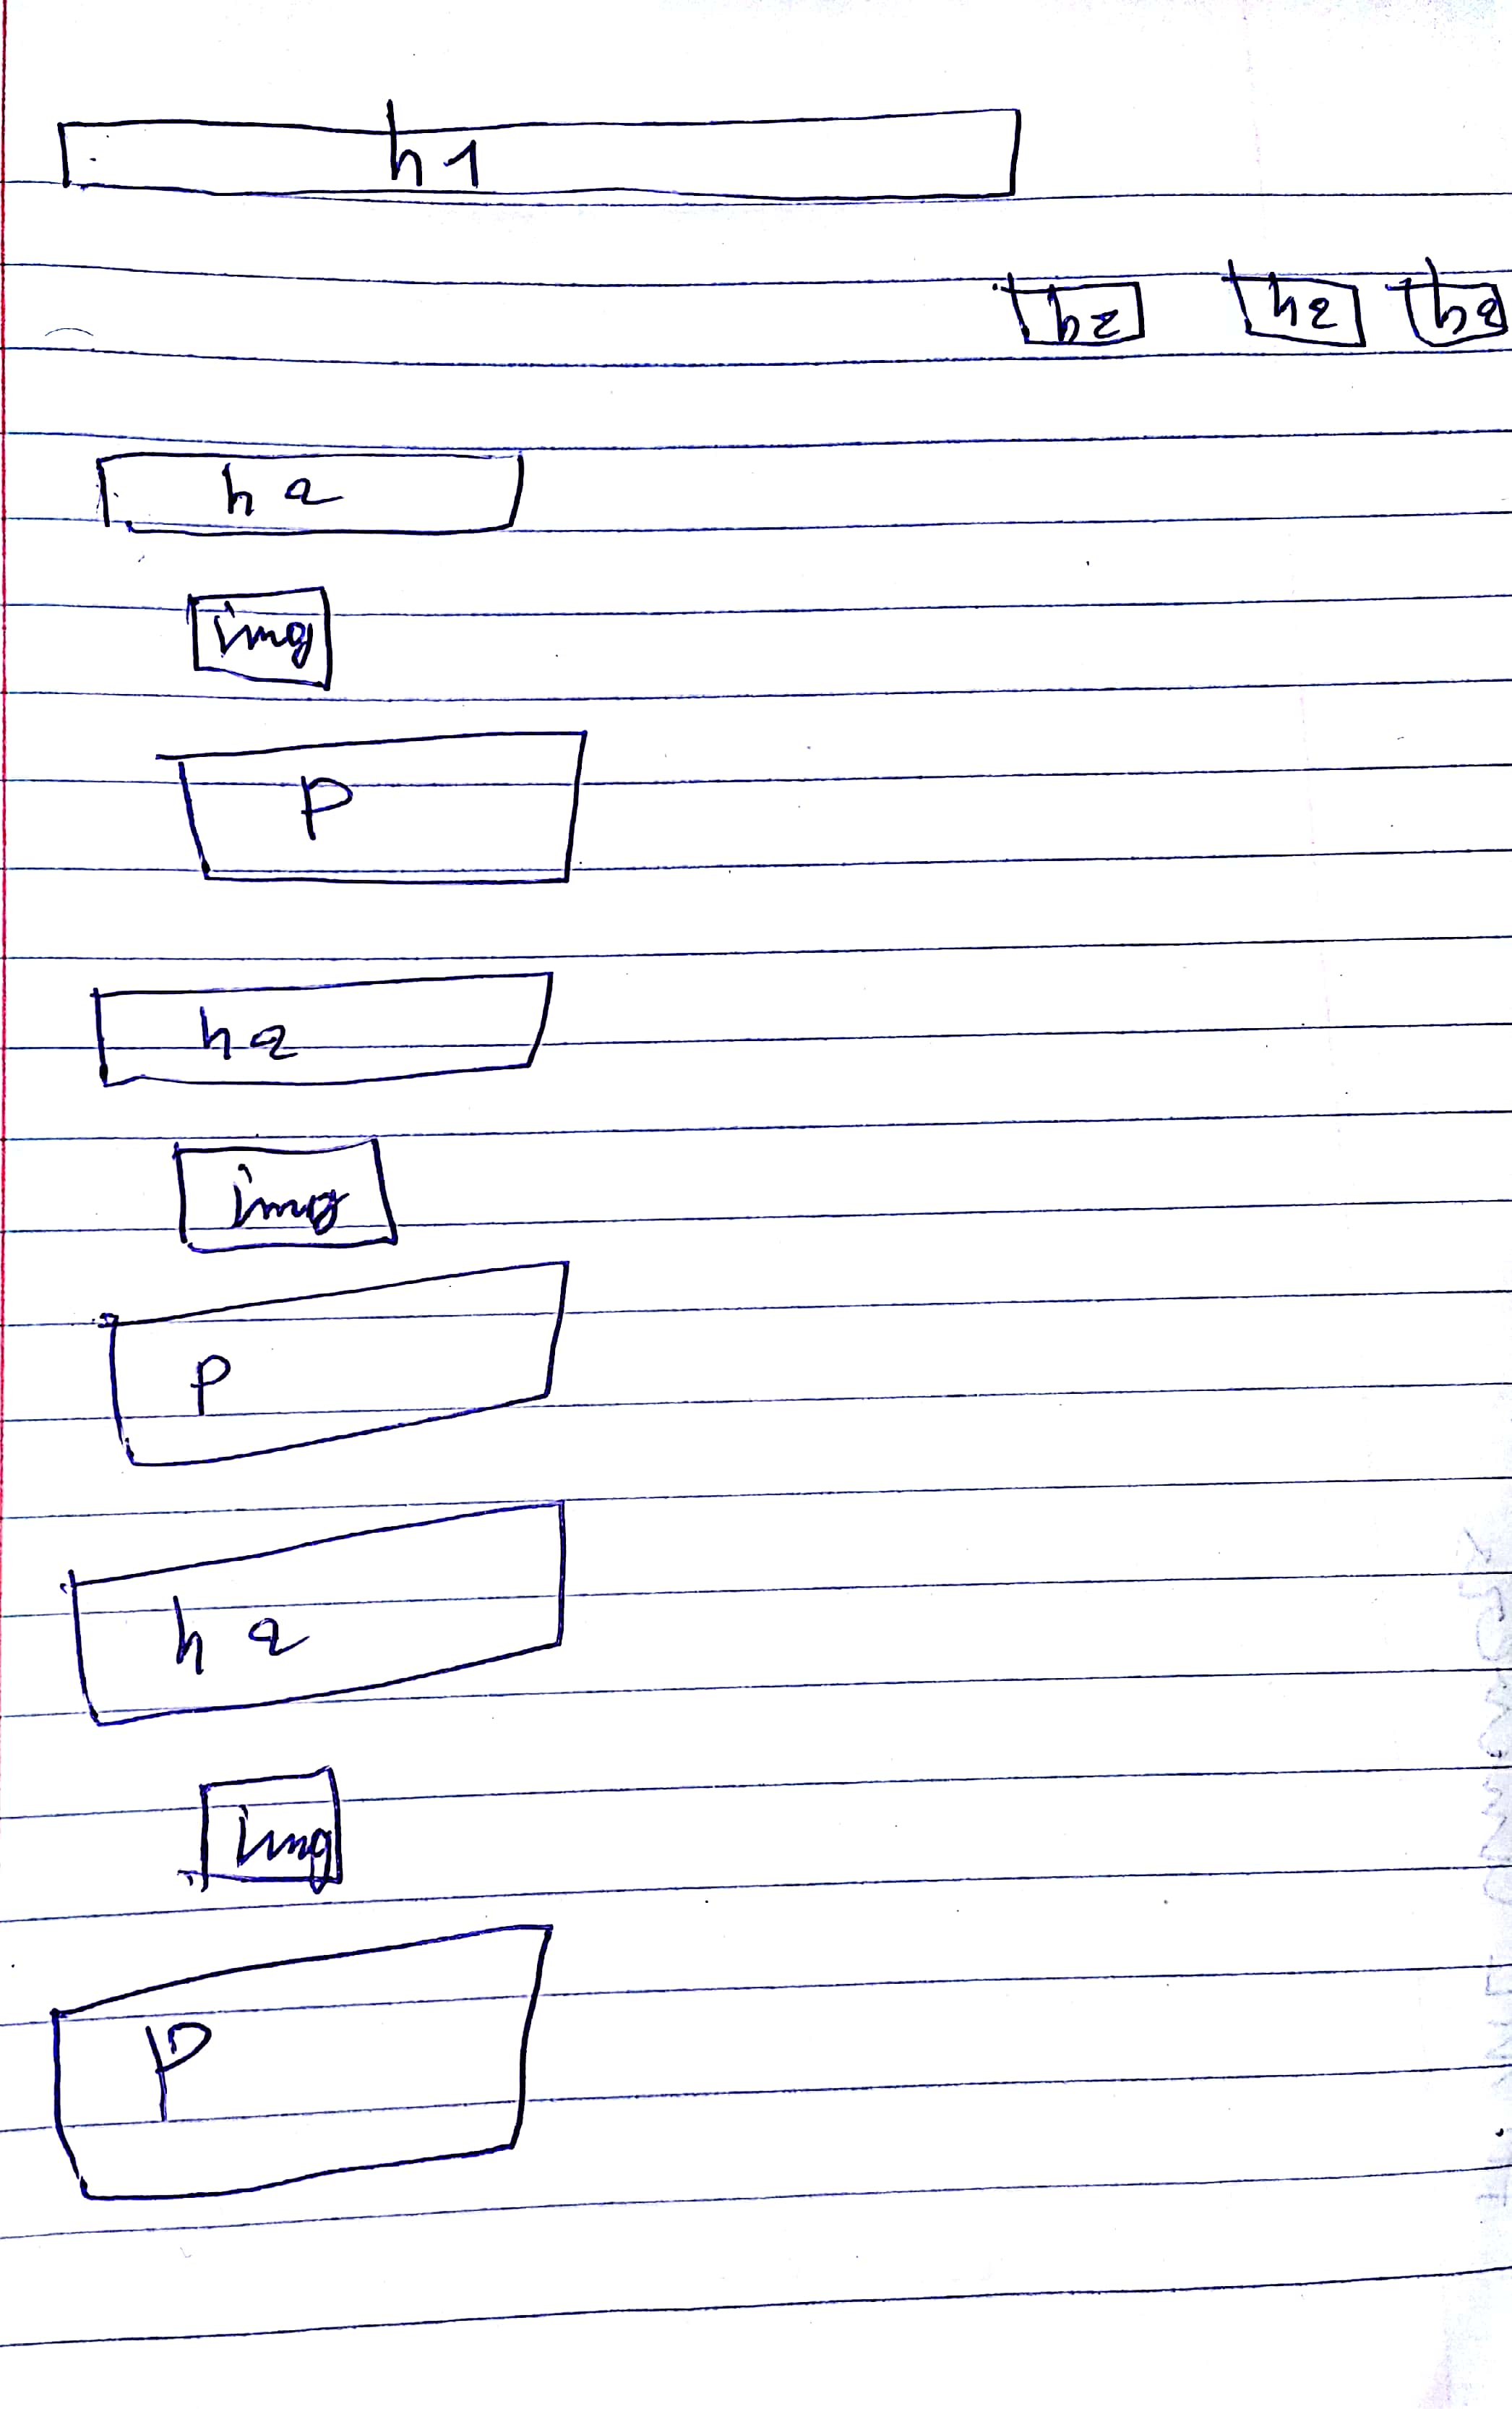 h1
h2 h2 h2
h2
img
P
h2
img
P
h2
img
P